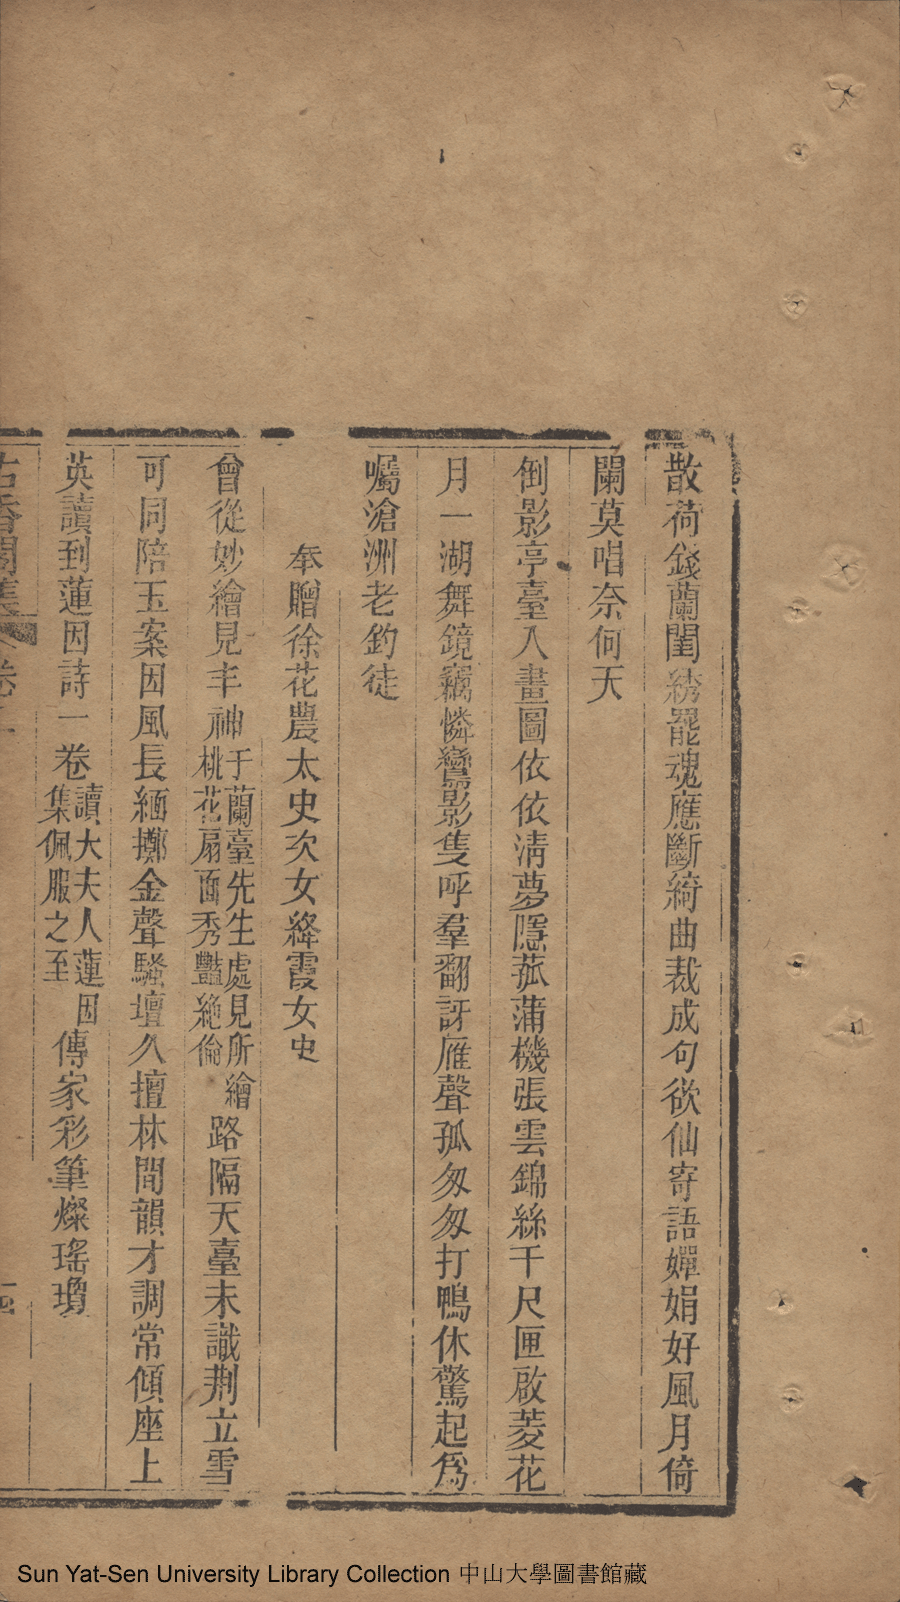 散荷錢蘭閨綉罷魂應斷綺曲裁成句欲仙寄語嬋娟好風月倚
闌莫唱奈何天
倒影亭臺入畫圖依依淸夢隱菰蒲機張雲錦絲千尺匣啟菱花
月一湖舞鏡竊憐鸞影隻呼羣翻訝雁聲孤匆匆打鴨休驚起爲
囑滄洲老釣徒
奉贈徐花農太史次女絳霞女史
曾從妙繪見丰神于蘭臺先生處見所繪桃花扇面秀豔絶倫路隔天臺未識荆立雪
可同陪玉案因風長緬擲金聲騷壇久擅林間韻才調常傾座上
英讀到蓮因詩一卷讀大夫人蓮因集佩服之至傳家彩筆燦瑤瓊
古香閣集 卷二
Sun Yat-Sen University Library Collection 中山大學圖書館藏